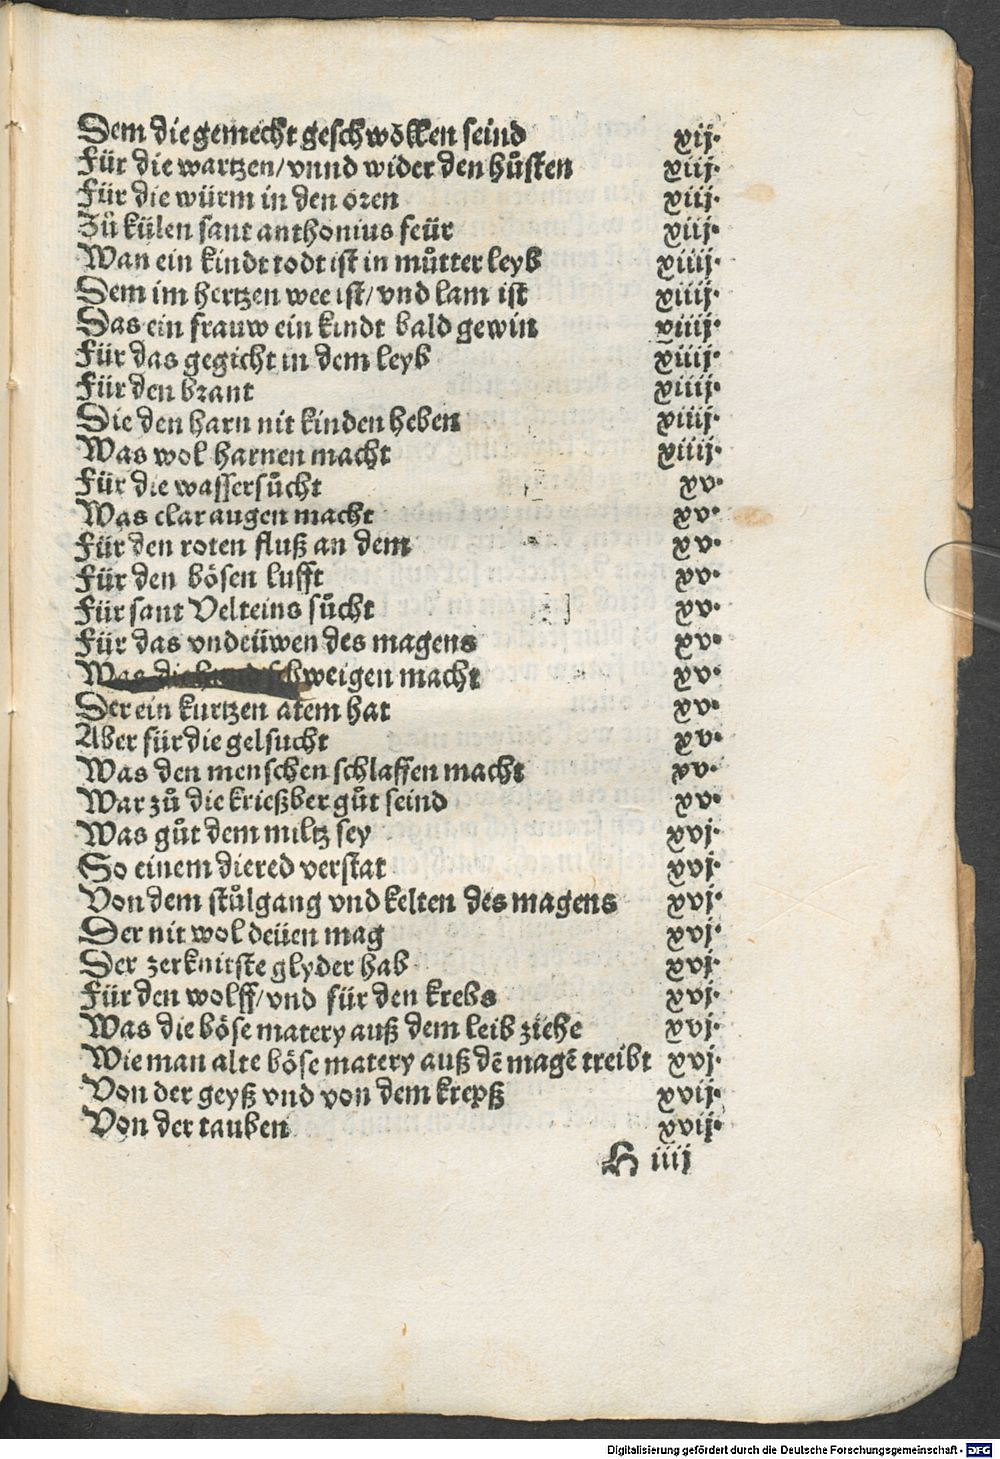 Dem die gemecht geschwollen seind xij.
Für die wartzen/ vnnd wider den hůsten xiij.
Für die würm in den oren xiij.
Zů külen sant anthonius feür xiij.
Wan ein kindt todt ist in můtter leyb xiiij.
Dem im hertzen wee ist/ vnd lam ist xiiij.
Das ein frauw ein kindt bald gewin xiiij.
Für das gegicht in dem leyb xiiij.
Für den brant xiiij.
Die den harn nit kinden heben xiiij.
Was wol harnen macht xiiij.
Für die wassersůcht xv.
Was clar augen macht xv.
Für den roten fluß an dem xv.
Für den bösen lufft xv.
Für sant Velteins sůcht xv.
Für das vndeüwen des magens xv.
Was die hund schweigen macht xv.
Der ein kurtzen atem hat xv.
Aber für die gelsucht xv.
Was den menschen schlaffen macht xv.
War zů die krießber gůt seind xv.
Was gůt dem miltz sey xvj.
So einem die red verstat xvj.
Von dem stůlgang vnd kelten des magens xvj.
Der nit wol deüen mag xvj.
Der zerknirste glyder hab xvj.
Für den wolff/ vnd für den krebs xvj.
Was die böse matery auß dem leib ziehe xvj.
Wie man alte böse matery auß dē magē treibt xvj.
Von der geyß vnd von dem krepß xvij.
Von der tauben xvij.
H iiij
Digitalisierung gefördert durch die Deutsche Forschungsgemeinschaft - DFG